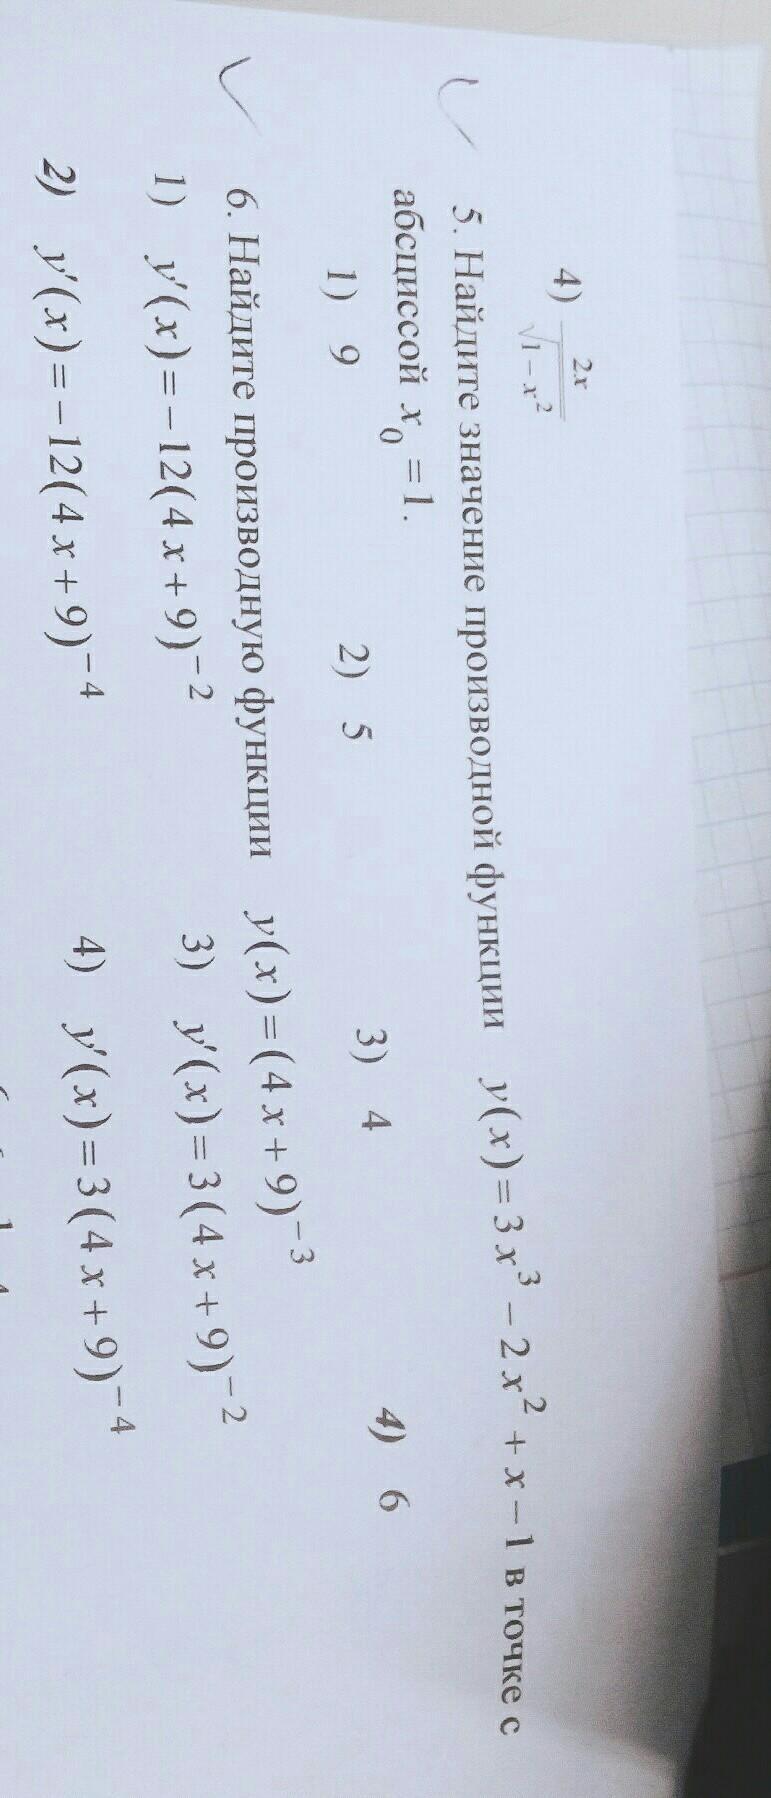 4) 2x/√(1 − x²)
5. Найдите значение производной функции y(x)=3x³−2x²+x−1 в точке с
абсциссой x₀=1.
1) 9 2) 5 3) 4 4) 6
6. Найдите производную функции y(x)=(4x+9)⁻³
1) y'(x)=−12(4x+9)⁻² 3) y'(x)=3(4x+9)⁻²
2) y'(x)=−12(4x+9)⁻⁴ 4) y'(x)=3(4x+9)⁻⁴